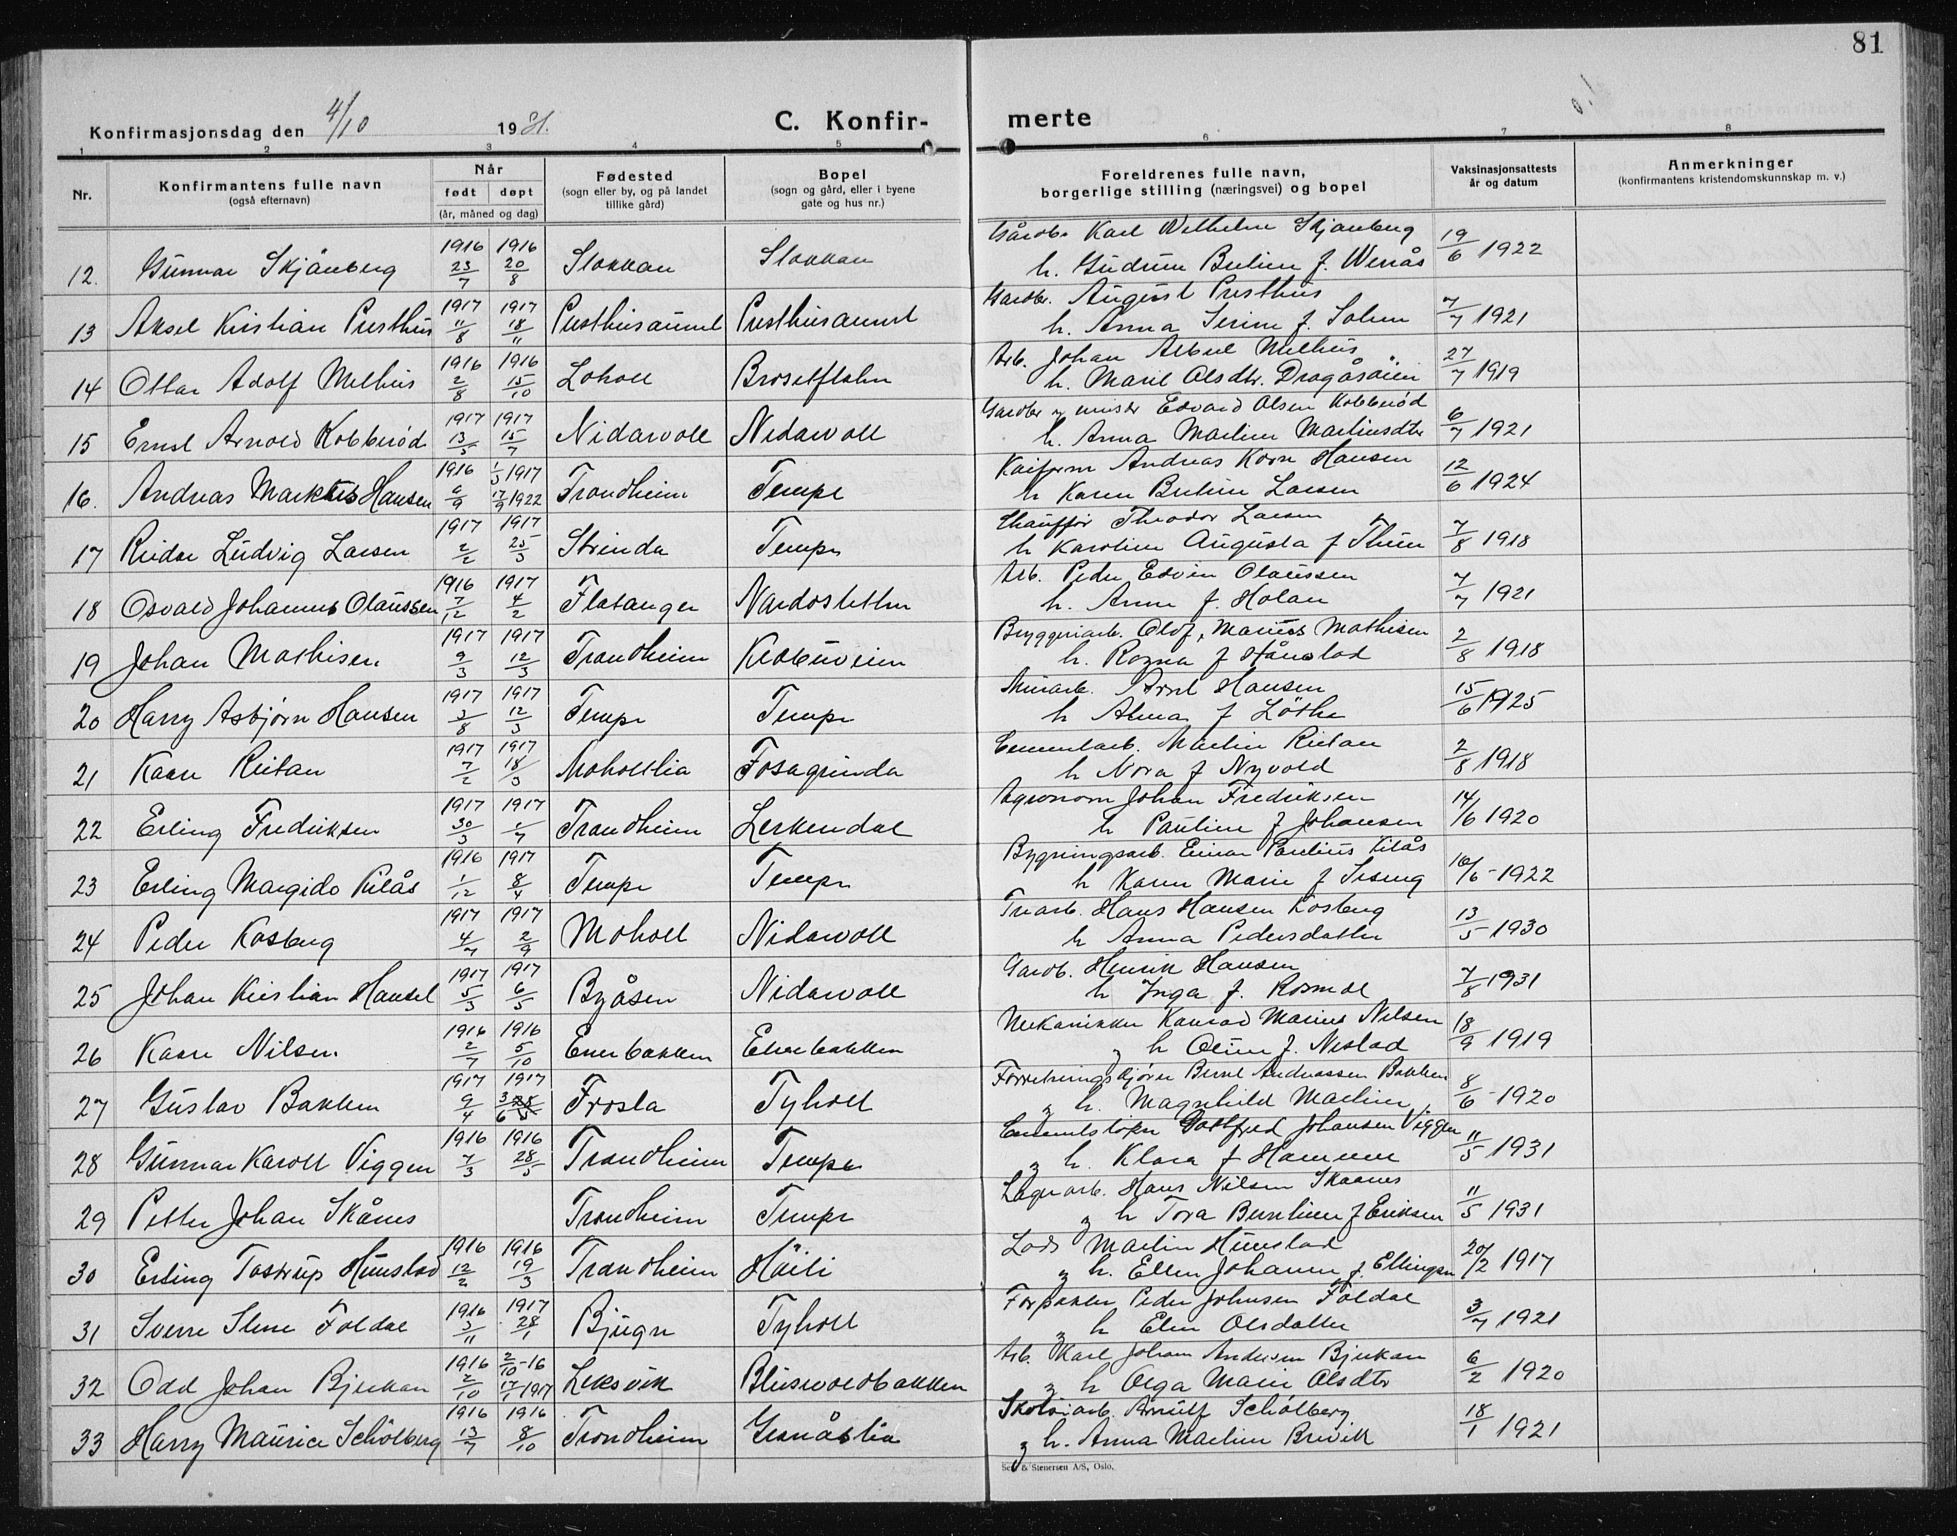 81
Konfirmasjonsdag den 4/10 1931. C. Konfirmerte
1 2 3 4 5 6 7 8
Nr. Konfirmantens fulle navn (også efternavn) Når født døpt (år, måned og dag) Fødested (sogn eller by, og på landet tillike gård) Bopel (sogn og gård, eller i byene gate og hus nr.) Foreldrenes fulle navn, borgerlige stilling (næringsvei) og bopel Vaksinasjonsattests år og datum Anmerkninger (konfirmantens kristendomskunnskap m. v.)
12. Gunnar Skjånberg 1916 23/7 1916 20/8 Stokkan Stokkan Gårdbr. Karl Vilhelm Skjånberg
h. Gudrun Beline f. Werrås 19/6 1922
13 Aksel Kristian Presthus 1917 11/8 1917 18/11 Presthusaunet Presthusaunet Gardbr. August Presthus
h. Anna Serine f. Solem 7/7 1921
14 Ottar Adolf Melhus 1916 2/8 1916 15/10 Loholt Brosetflaten Arb. Johan Melhus
h. Marie Olsdtr. Dragåsøien 27/7 1919
15 Ernst Arnold Kobberød 1917 13/5 1917 15/7 Nidarvoll Nidarvoll Gardbr Edvard Olsen Kobberød
h. Anna Martine Martinsdtr 6/7 1921
16. Andreas Markus Hansen 1916 6/9 1/3 1917 17/9 1922 Trondheim Tempe Kaiform Andreas Korn Hansen
h Karen Beline Larsen 12/6 1924
17 Reidar Ludvig Larsen 1917 2/2 1917 25/3 Strinda Tempe Chauffør Theodor Larsen
h Karoline Augusta f Thun 7/8 1918
18 Osvald Johannes Olaussen 1916 7/12 1917 4/2 Flatanger Nardosletten Arb. Peder Edvin Olaussen
h. Anne f. Holan 7/7 1921
19 Johan Mathisen 1917 9/3 1917 12/3 Trondheim Klæbuveien Bryggeriarb. Olof, Marius Mathisen
h. Ragna f Hånstad 2/8 1918
20 Harry Asbjørn Hansen 1917 3/8 1917 12/3 Tempe Tempe Murarb. Arnt Hansen
h Alma f Løthe 15/6 1925
21 Kaare Reitan 1917 7/2 1917 18/3 Moholtlia Fosagrinda Cementarb. Martin Reitan
h Nora f Nyvold 2/8 1918
22 Erling Fredriksen 1917 30/3 1917 1/7 Trondheim Lerkendal Agronom Johan Fredriksen
h Pauline f Johansen 14/6 1920
23 Erling Margido Lilås 1916 1/12 1917 8/4 Tempe Tempe Bygningsarb. Einar Paulius Lilås
h Karen Marie f Sesseng 16/6 - 1922
24 Peder Kosberg 1917 4/7 1917 2/9 Moholt Nidarvoll Trearb. Hans Hansen Kosberg
h Anna Pedersdatter 13/5 1930
25 Johan Kristian Hansel 1917 5/3 1917 6/5 Byåsen Nidarvoll Gardb. Henrik Hansen
h Inga f. Rosmæl 7/8 1931
26 Kaare Nilsen 1916 2/7 1916 5/10 Enerbakken Enerbakken Mekaniker Konrad Marius Nilsen
og h Oline f. Nestad 18/9 1919
27 Gustav Bakken 1917 9/4 1917 3/6 Frosta Tyholt Forretningskjører Bernt Andreassen Bakken
og h. Magnhild Martine 8/6 - 1920
28 Gunnar Karoll Viggen 1916 7/3 1916 28/5 Trondheim Tempe Cementstøper Gottfred Johansen Viggen
og h. Klara f Hammer 11/5 1931
29 Petter Johan Skånes Trondheim Tempe Lagerarb. Hans Nilsen Skaanes
og h Tora Berntine f Eriksen 11/5 1931
30 Erling Tostrup Hunstad 1916 12/2 1916 19/3 Trondheim Høili Lods Martin Hunstad
og h. Ellen Johanne f. Ellingsen 20/2 1917
31 Sverre Stene Foldal 1916 3/11 1917 28/1 Bjugn Tyholt Forpakter Peder Johnsen Foldal
og h Elen Olsdatter 3/7 1921
32 Odd Johan Bjerkan 1916 2/10 2/10 - 16 17/1 1917 Leksvik Blusuvoldbakken Arb. Karl Johan Andersen Bjerkan
og h Olga Marie Olsdtr 6/2 1920
33 Harry Maurice Schölberg 1916 13/7 1916 8/10 Trondheim Granåslia Skotøiarb. Arnulf Schölberg
og h. Anna Martine Brevik 18/1 1921
& Stenersen A/S, Oslo.